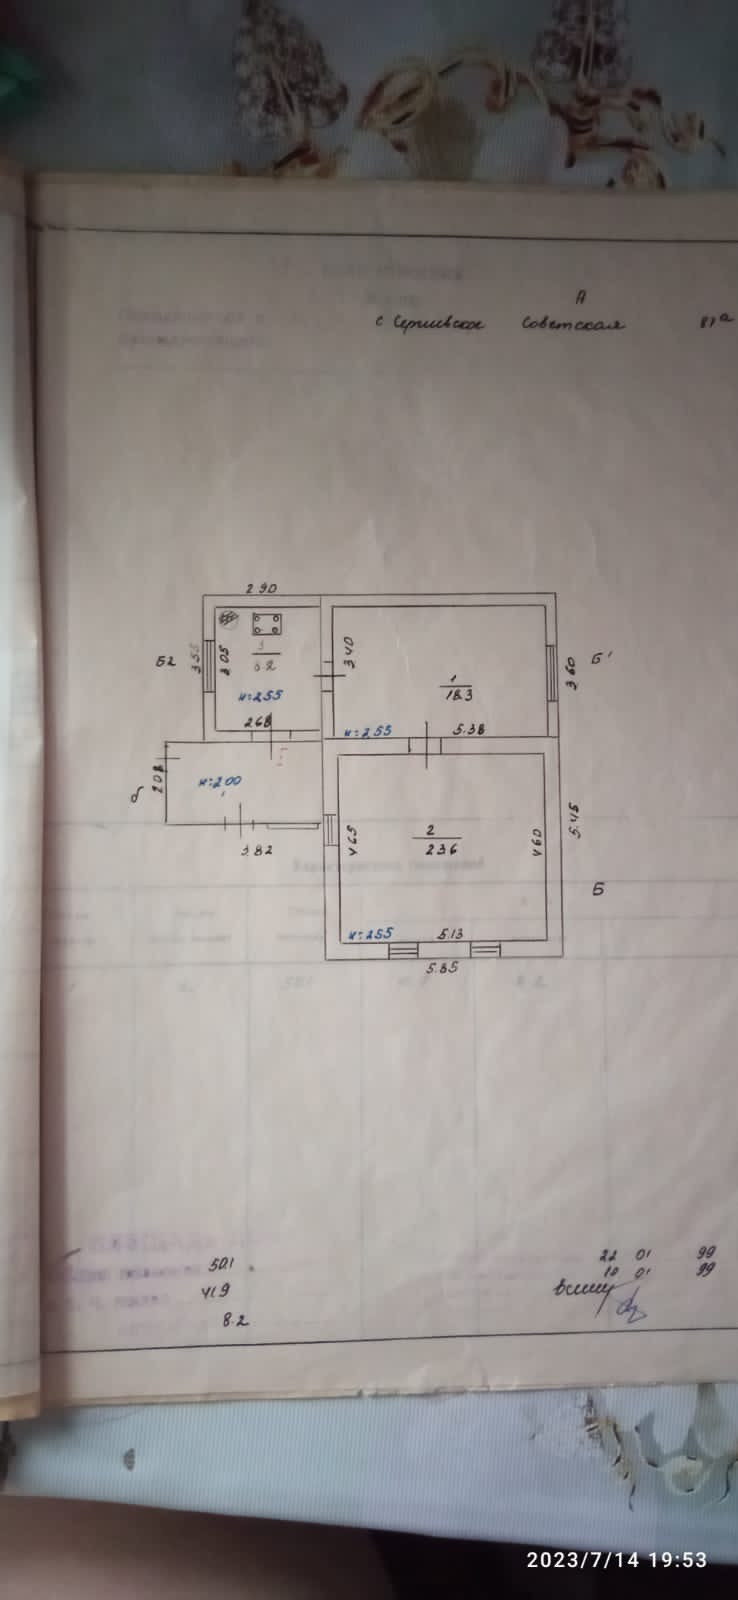 А
с Сергиевское Советская 81а
2 90
Б2
3 55
3 05
3
8.2
н=2.55
2.68
3 40
1
18.3
3 60
Б'
н=2.55
5.38
б
2 08
н=2.00
3.82
4 65
2
23.6
4 60
5.45
Б
н=2.55
5.13
5.85
50.1
41.9
8.2
22 01 99
10 01 99
2023/7/14 19:53